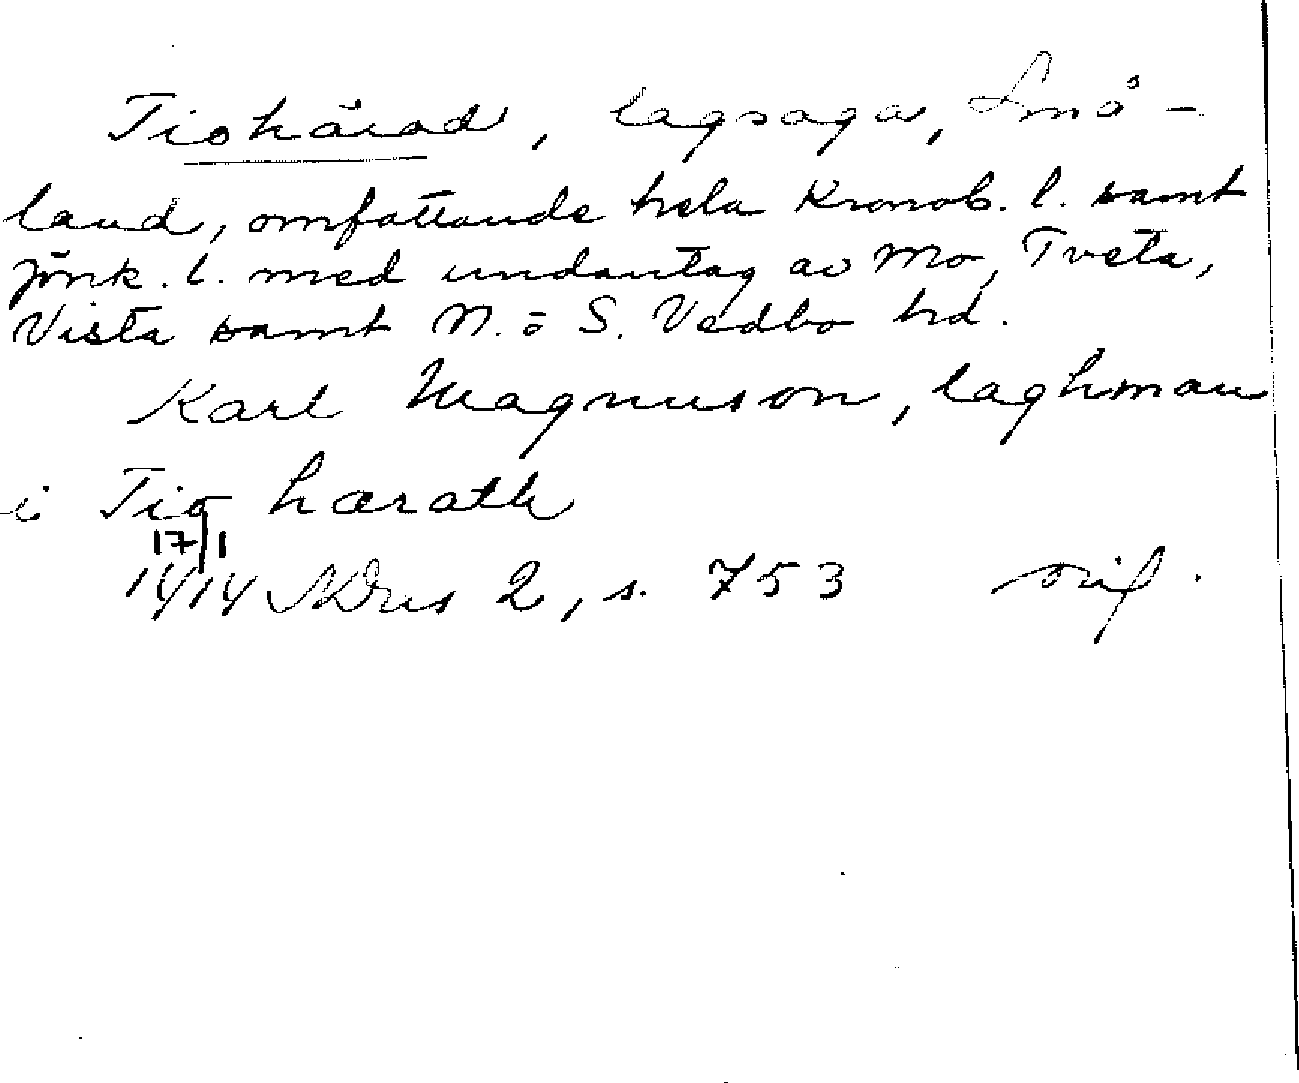 Tiohärad, lagsaga, Små-
land, omfattande hela Kronob. l. samt
Jönk. l. med undantag av Mo, Tveta,
Vista samt N. o S. Vedbo hd.
Karl Magnuson, laghman
i Tio hærath
17/1
1414 SDns 2, s. 753 orig.